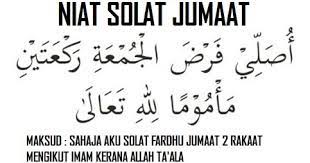 NIAT SOLAT JUMAAT
أُصَلِّي فَرْضَ الْجُمْعَةِ رَكْعَتَيْنِ
مَأْمُومًا لِلَّهِ تَعَالَى
MAKSUD : SAHAJA AKU SOLAT FARDHU JUMAAT 2 RAKAAT
MENGIKUT IMAM KERANA ALLAH TA'ALA